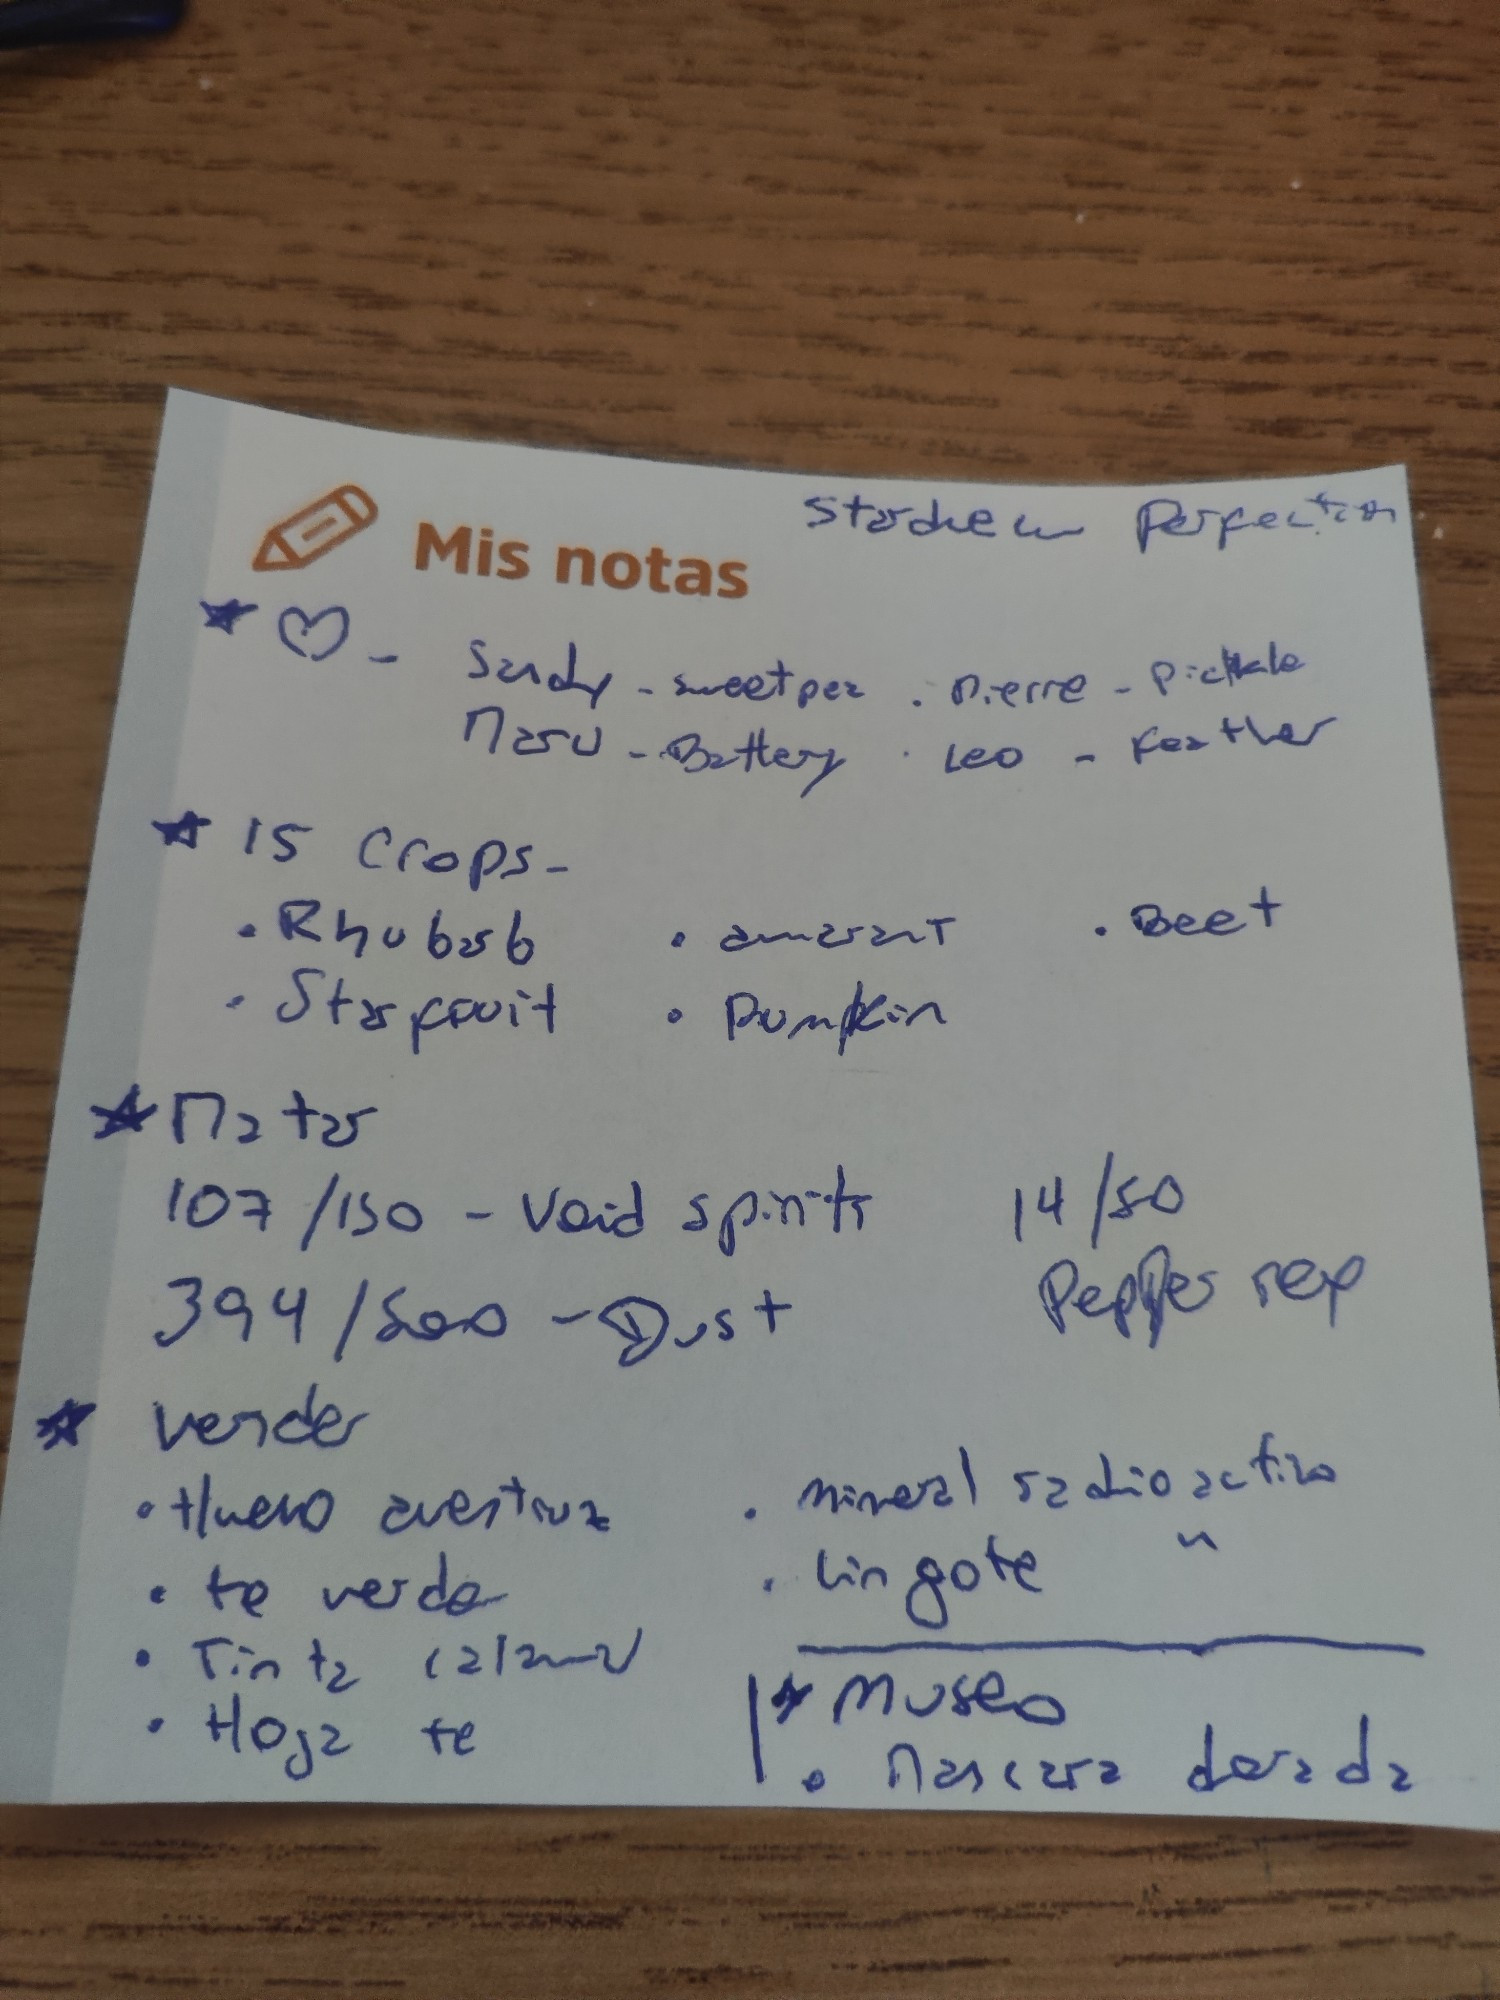 Stardew Perfection
Mis notas
♡ - Sandy - sweet pea . Pierre - Pickle
Maru - Battery . Leo - Feather
15 Crops -
. Rhubarb . amarant . Beet
. Starfruit . Pumpkin
Matar
107/150 - Void spirits 14/50
394/500 - Dust Pepper rex
Vender
. Huevo avestruz . mineral radioactivo
. te verde . lingote "
. Tinta calamar
. Hoja te
Museo
. Mascara dorada